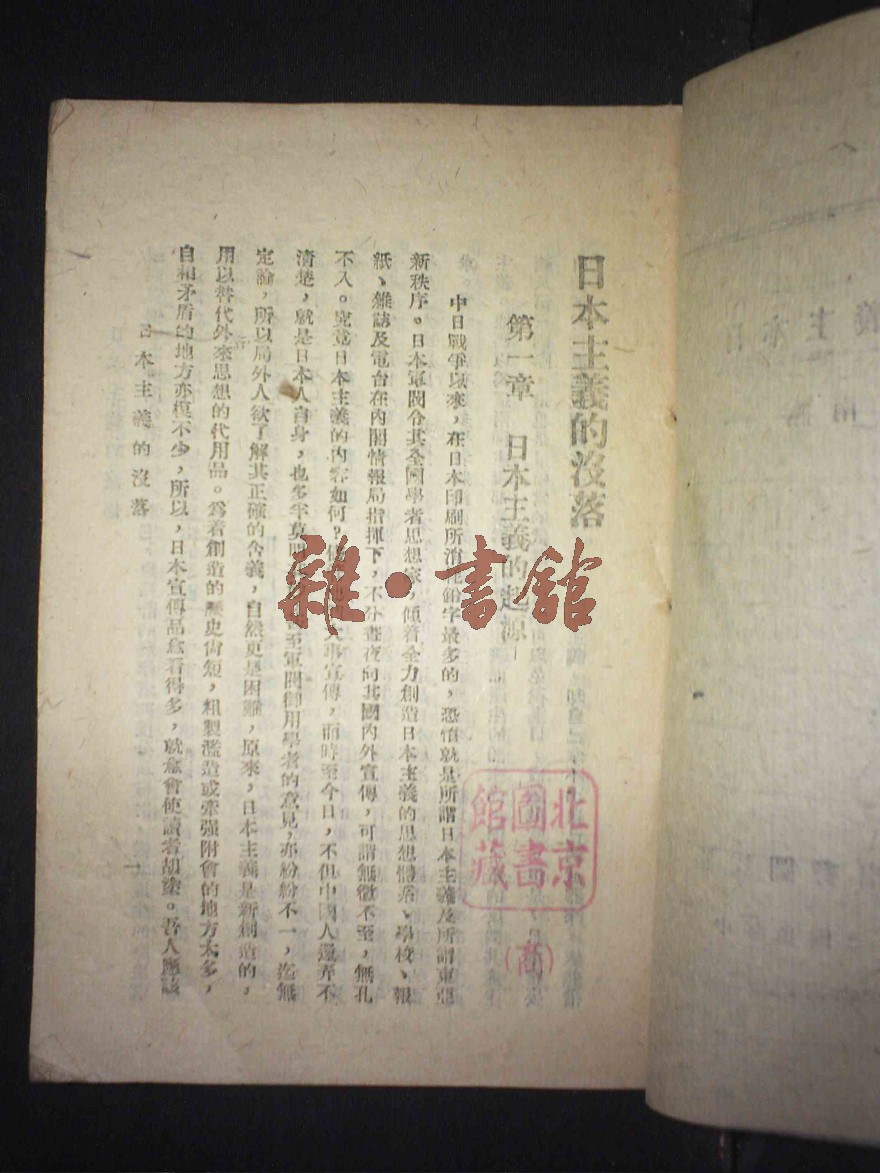 日本主義的沒落
第一章　日本主義的起源
中日戰爭以來，在日本印刷所消耗鉛字最多的，恐怕就是所謂日本主義及所謂東亞
新秩序。日本軍閥令其全國學者思想家，傾着全力創造日本主義的思想體系、學校、報
紙、雜誌及電台在內閣情報局指揮下，不分晝夜向其國內外宣傳，可謂無微不至，無孔
不入。究竟日本主義的內容如何？大事宣傳，而時至今日，不但中國人還弄不
清楚，就是日本人自身，也多半莫至軍閥御用學者的意見，亦紛紛不一，迄無
定論，所以局外人欲了解其正確的含義，自然更是困難，原來，日本主義是新創造的，
用以替代外來思想的代用品。爲着創造的歷史尙短，粗製濫造或牽强附會的地方太多，
自相矛盾的地方亦復不少，所以，日本宣傳品愈看得多，就愈會使讀者胡塗。吾人應該
日本主義的沒落
一
雜·書館
北京
圖書
館藏
（商）